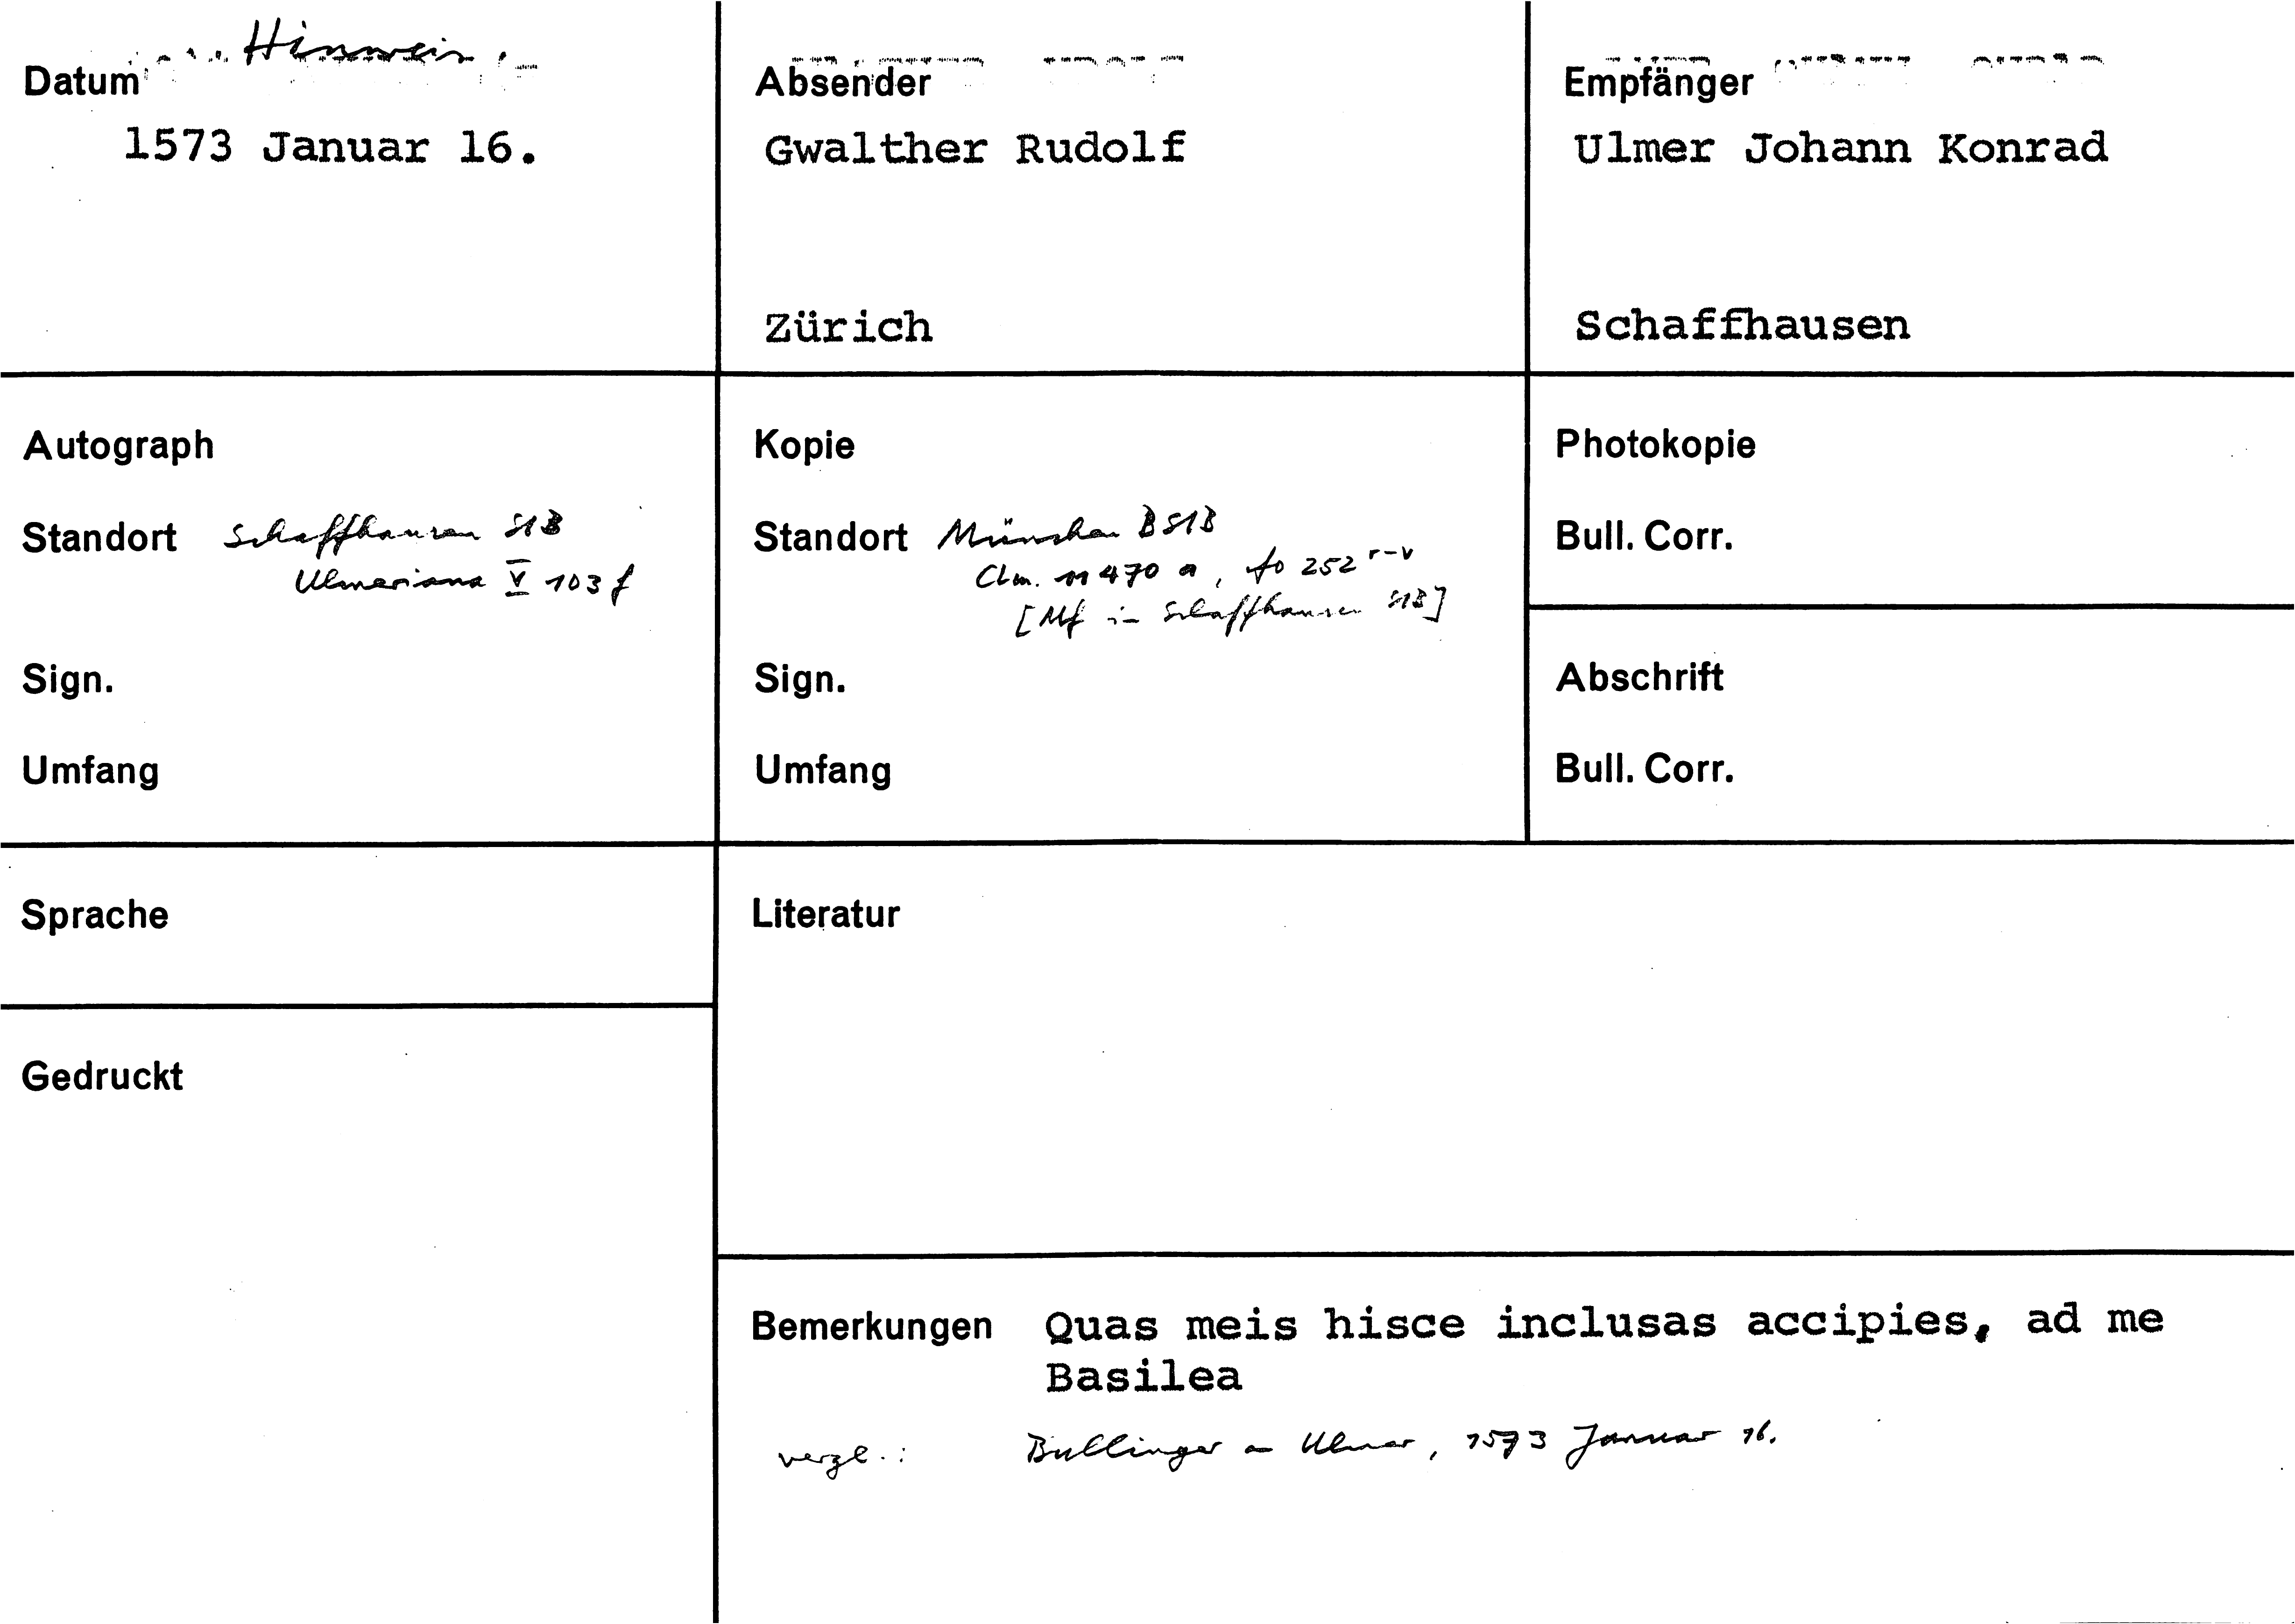 Hinweis
Datum
1573 Januar 16.
Absender
Gwalther Rudolf
Zürich
Empfänger
Ulmer Johann Konrad
Schaffhausen
Autograph
Standort Schaffhausen StB
Ulmeriana V 103 f
Sign.
Umfang
Kopie
Standort München BStB
Clm. 11470 a, fo 252 r-v
[Mf in Schaffhausen StB]
Sign.
Umfang
Photokopie
Bull. Corr.
Abschrift
Bull. Corr.
Sprache
Gedruckt
Literatur
Bemerkungen Quas meis hisce inclusas accipies, ad me
Basilea
vergl.: Bullinger an Ulmer, 1573 Januar 16.